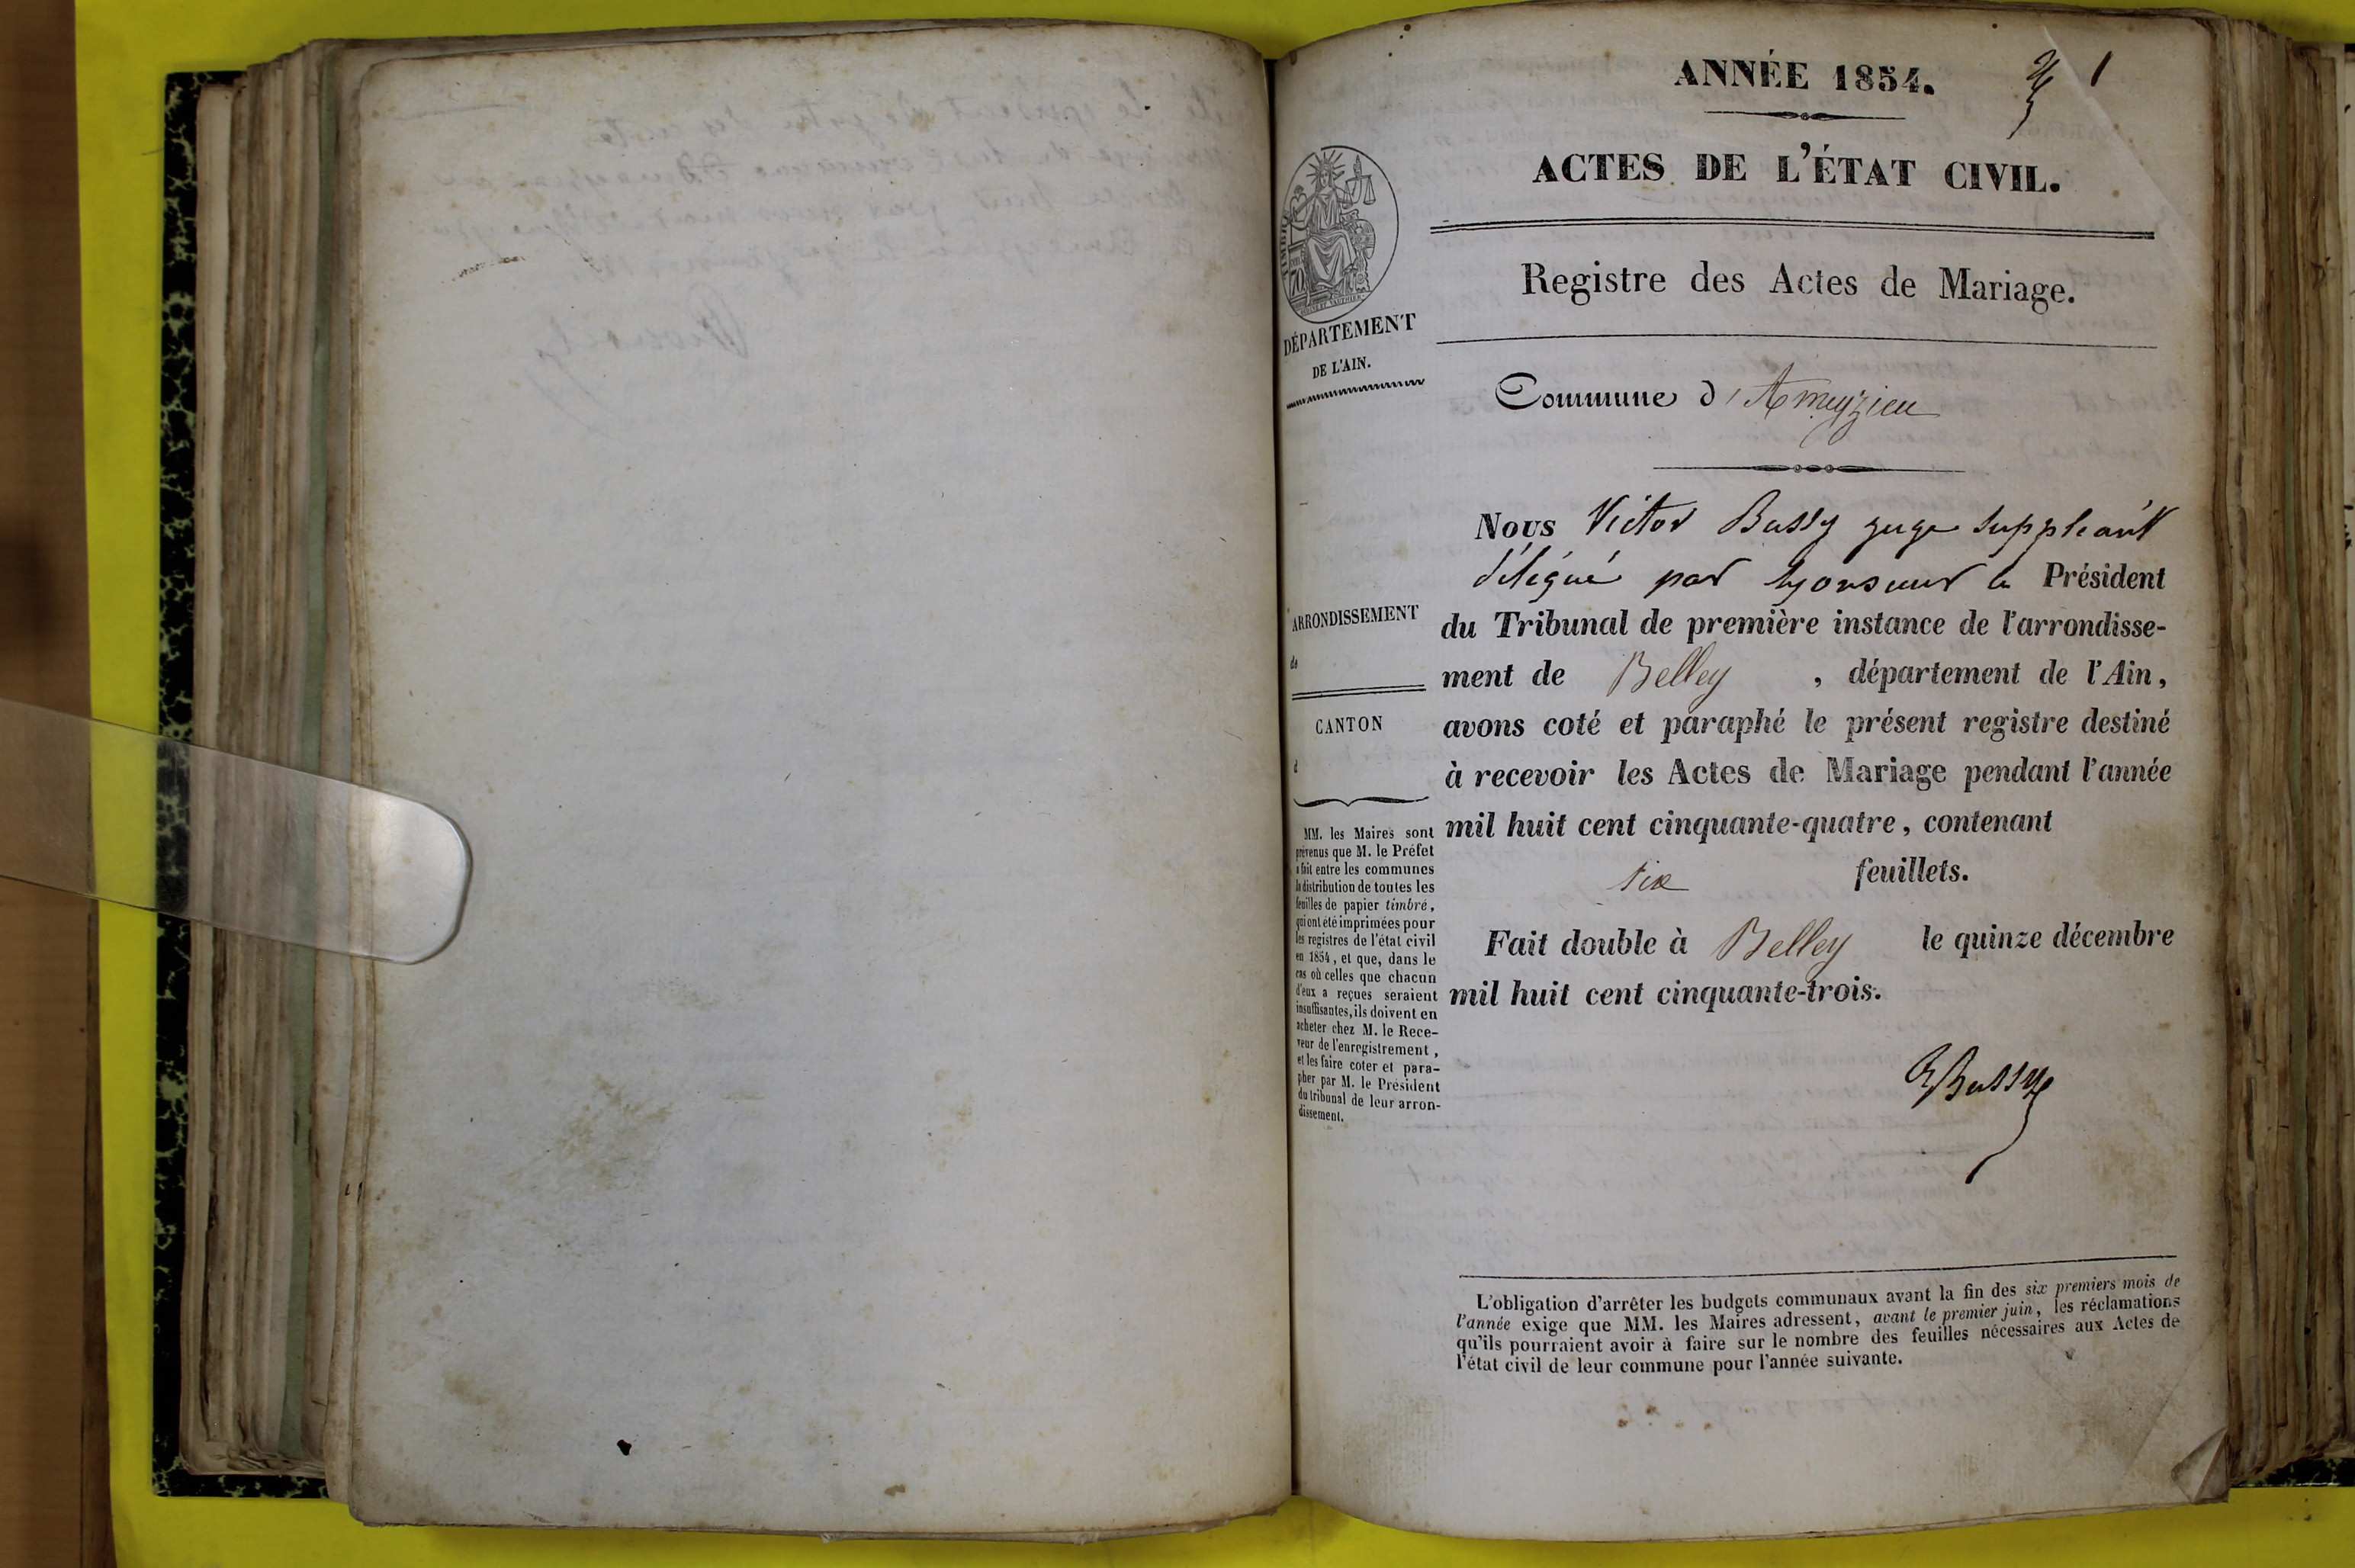 ANNÉE 1854.
1
ACTES DE L'ÉTAT CIVIL.
Registre des Actes de Mariage.
TIMBRE
70
DÉPARTEMENT
DE L'AIN.
Commune d'Ameyzieu
Nous Victor Bussy juge suppleant
délégué par Monsieur le Président
du Tribunal de première instance de l'arrondisse-
ment de Belley , département de l'Ain,
avons coté et paraphé le présent registre destiné
à recevoir les Actes de Mariage pendant l'année
mil huit cent cinquante-quatre, contenant
six feuillets.
Fait double à Belley le quinze décembre
mil huit cent cinquante-trois.
VBussy
ARRONDISSEMENT
de
CANTON
d
MM. les Maires sont
prévenus que M. le Préfet
a fait entre les communes
la distribution de toutes les
feuilles de papier timbré,
qui ont été imprimées pour
les registres de l'état civil
en 1854, et que, dans le
cas où celles que chacun
d'eux a reçues seraient
insuffisantes, ils doivent en
acheter chez M. le Rece-
veur de l'enregistrement,
et les faire coter et para-
pher par M. le Président
du tribunal de leur arron-
dissement.
L'obligation d'arrêter les budgets communaux avant la fin des six premiers mois de
l'année exige que MM. les Maires adressent, avant le premier juin, les réclamations
qu'ils pourraient avoir à faire sur le nombre des feuilles nécessaires aux Actes de
l'état civil de leur commune pour l'année suivante.